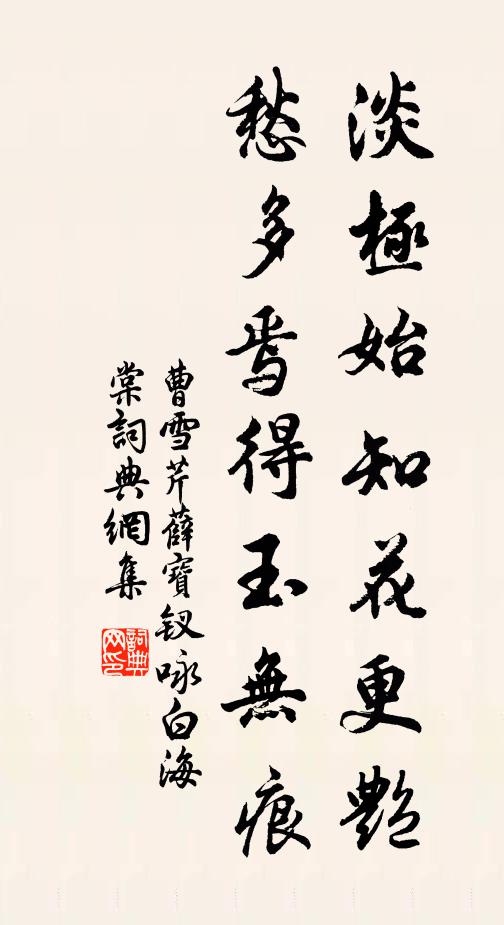 淡極始知花更艷
愁多焉得玉無痕
曹雪芹薛寶釵咏白海
棠詞典網集
詞典网印